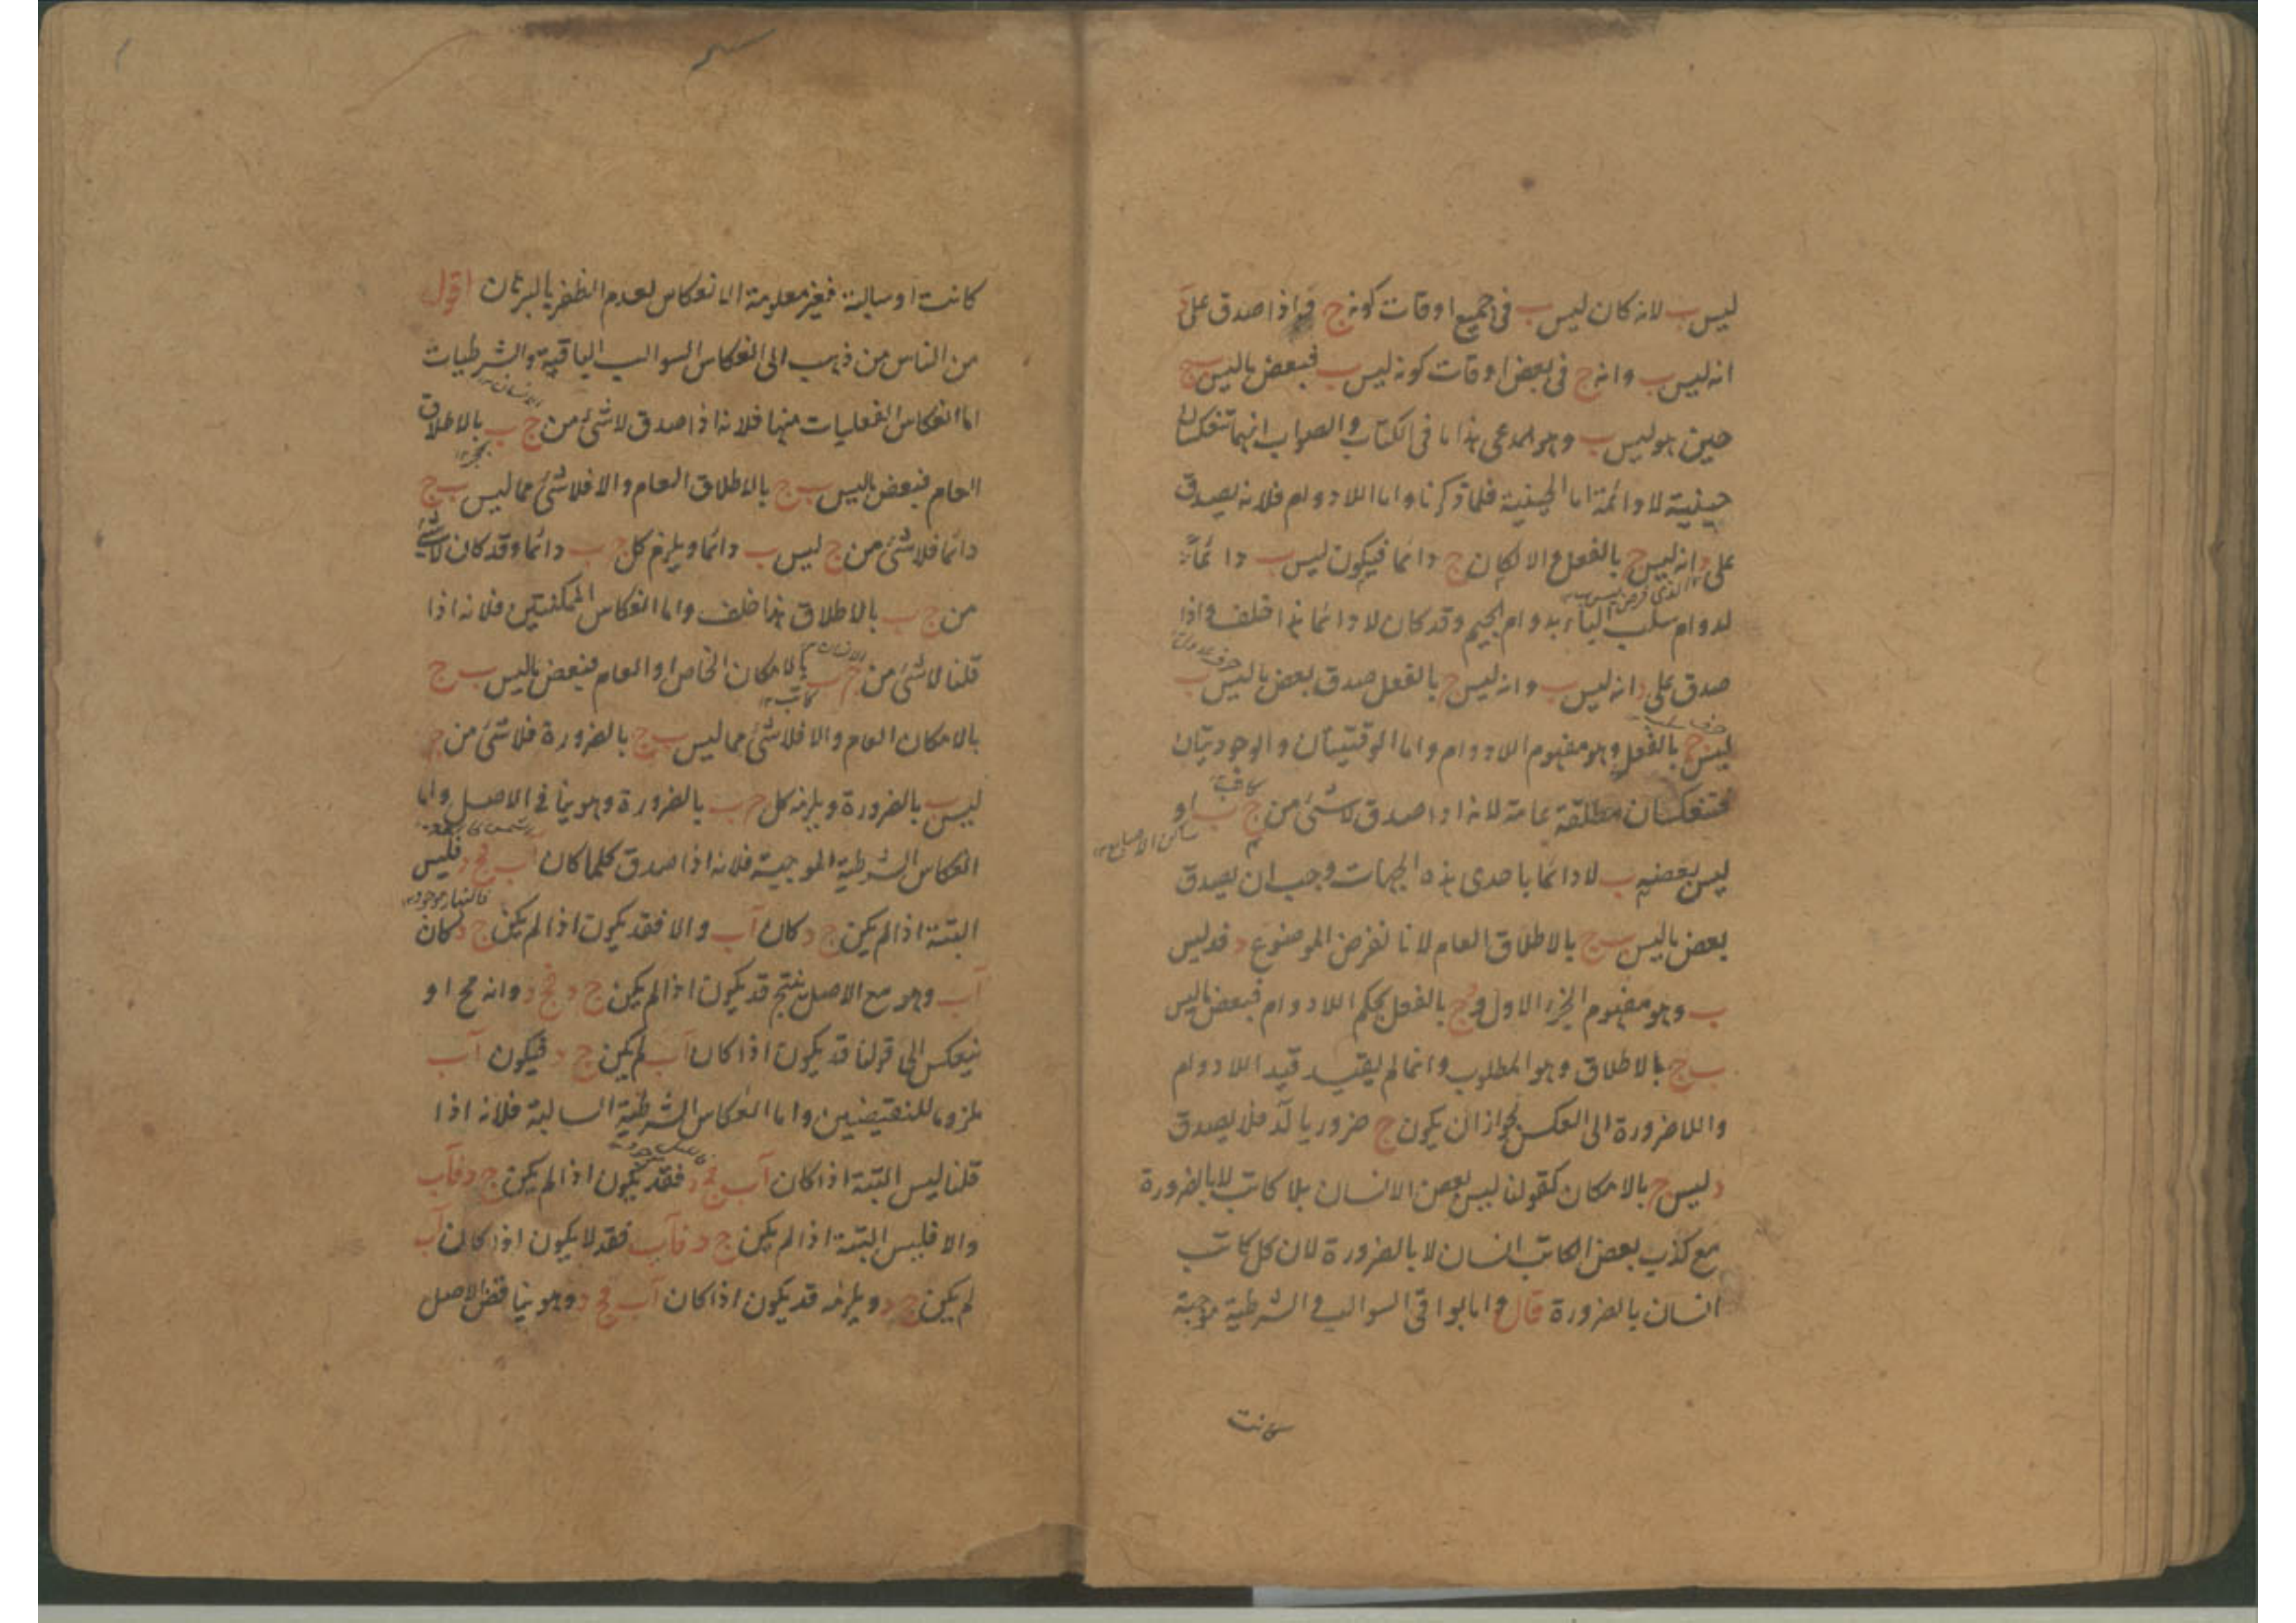 ليس ب لانه كان ليس ب في جميع اوقات كونه ج فاذا صدق على د
انه ليس ب وانه ج في بعض اوقات كونه ليس ب فبعض ماليس ج
حين هو ليس ب وهو المدعى هذا ما في الكتاب والصواب انهما تنعكسان
حينية لا دائمة اما الحينية فلما ذكرنا واما اللادوام فلانه يصدق
على د انه ليس ج بالفعل والا لكان ج دائما فيكون ليس ب دائما
الذي فرض ليس ب
لدوام سلب الباء بدوام الجيم وقد كان لا دائما هذا خلف واذا
صدق على د انه ليس ب وانه ليس ج بالفعل صدق بعض ماليس ب
ليس ج بالفعل وهو مفهوم اللادوام واما الوقتيتان والوجوديتان
فتنعكسان مطلقة عامة لانه اذا صدق لاشئ من ج ب او
كاتب
ساكن الاصابع
ليس بعضه ب لادائما باحدى هذه الجهات وجب ان يصدق
بعض ماليس ب ج بالاطلاق العام لانا نفرض الموضوع د فد ليس
ب وهو مفهوم الجزء الاول و د ج بالفعل بحكم اللادوام فبعض ماليس
ب ج بالاطلاق وهو المطلوب وانما لم يقيد قيد اللادوام
واللاضرورة الى العكس لجواز ان يكون ج ضروريا لد فلا يصدق
د ليس ج بالامكان كقولنا ليس بعض الانسان بلا كاتب لابالضرورة
مع كذب بعض الكاتب انسان لا بالضرورة لان كل كاتب
انسان بالضرورة قال واما بواقي السوالب والشرطية موجبة
كانت
كانت او سالبة فغير معلومة الانعكاس لعدم الظفر بالبرهان اقول
من الناس من ذهب الى انعكاس السوالب الباقية والشرطيات
اما انعكاس الفعليات منها فلانه اذا صدق لاشئ من ج ب بالاطلاق
الانسان
بحجر
العام فبعض ماليس ب ج بالاطلاق العام والا فلاشئ مما ليس ب ج
دائما فلاشئ من ج ليس ب دائما ويلزم كل ج ب دائما وقد كان لاشئ
من ج ب بالاطلاق هذا خلف واما انعكاس الممكنتين فلانه اذا
قلنا لاشئ من ج ب بالامكان الخاص او العام فبعض ماليس ب ج
الانسان
كاتب
بالامكان العام والا فلاشئ مما ليس ب ج بالضرورة فلاشئ من ج
ليس ب بالضرورة ويلزمه كل ج ب بالضرورة وهو ينافي الاصل واما
انعكاس الشرطية الموجبة فلانه اذا صدق كلما كان ا ب فج د فليس
فالنهار موجود
البتة اذا لم يكن ج د كان اب والا فقد يكون اذا لم يكن ج د كان
اب وهو مع الاصل ينتج قد يكون اذا لم يكن ج د فج د وانه مح او
ينعكس الى قولنا قد يكون اذا كان اب لم يكن ج د فيكون اب
ملزوما للنقيضين واما انعكاس الشرطية السالبة فلانه اذا
قلنا ليس البتة اذا كان اب فج د فقد يكون اذا لم يكن ج د فاب
والا فليس البتة اذا لم يكن ج د فاب فقد لا يكون اذا كان اب
لم يكن ج د ويلزمه قد يكون اذا كان اب فج د وهو يناقض الاصل